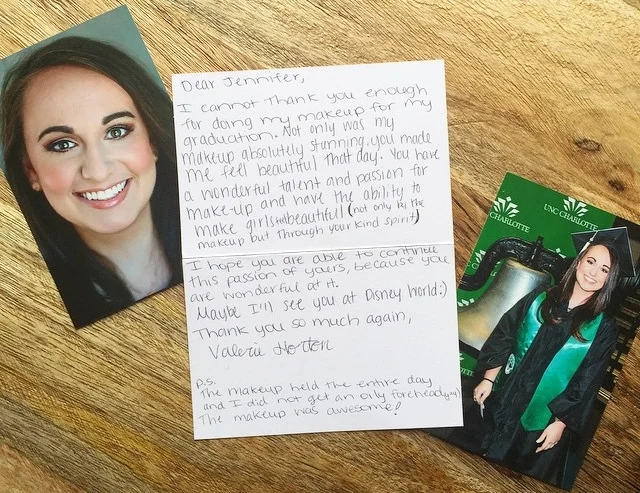 Dear Jennifer,
I cannot thank you enough
for doing my makeup for my
graduation. Not only was my
makeup absolutely stunning, you made
me feel beautiful that day. You have
a wonderful talent and passion for
make-up and have the ability to
make girls beautiful (not only by the
makeup but through your kind spirit)
I hope you are able to continue
this passion of yours, because you
are wonderful at it.
Maybe I'll see you at Disney World:)
Thank you so much again,
Valerie Horton
p.s.
The makeup held the entire day
and I did not get an oily forehead
The makeup was awesome!
UNC CHARLOTTE
CHARLOTTE
CHARLOTTE